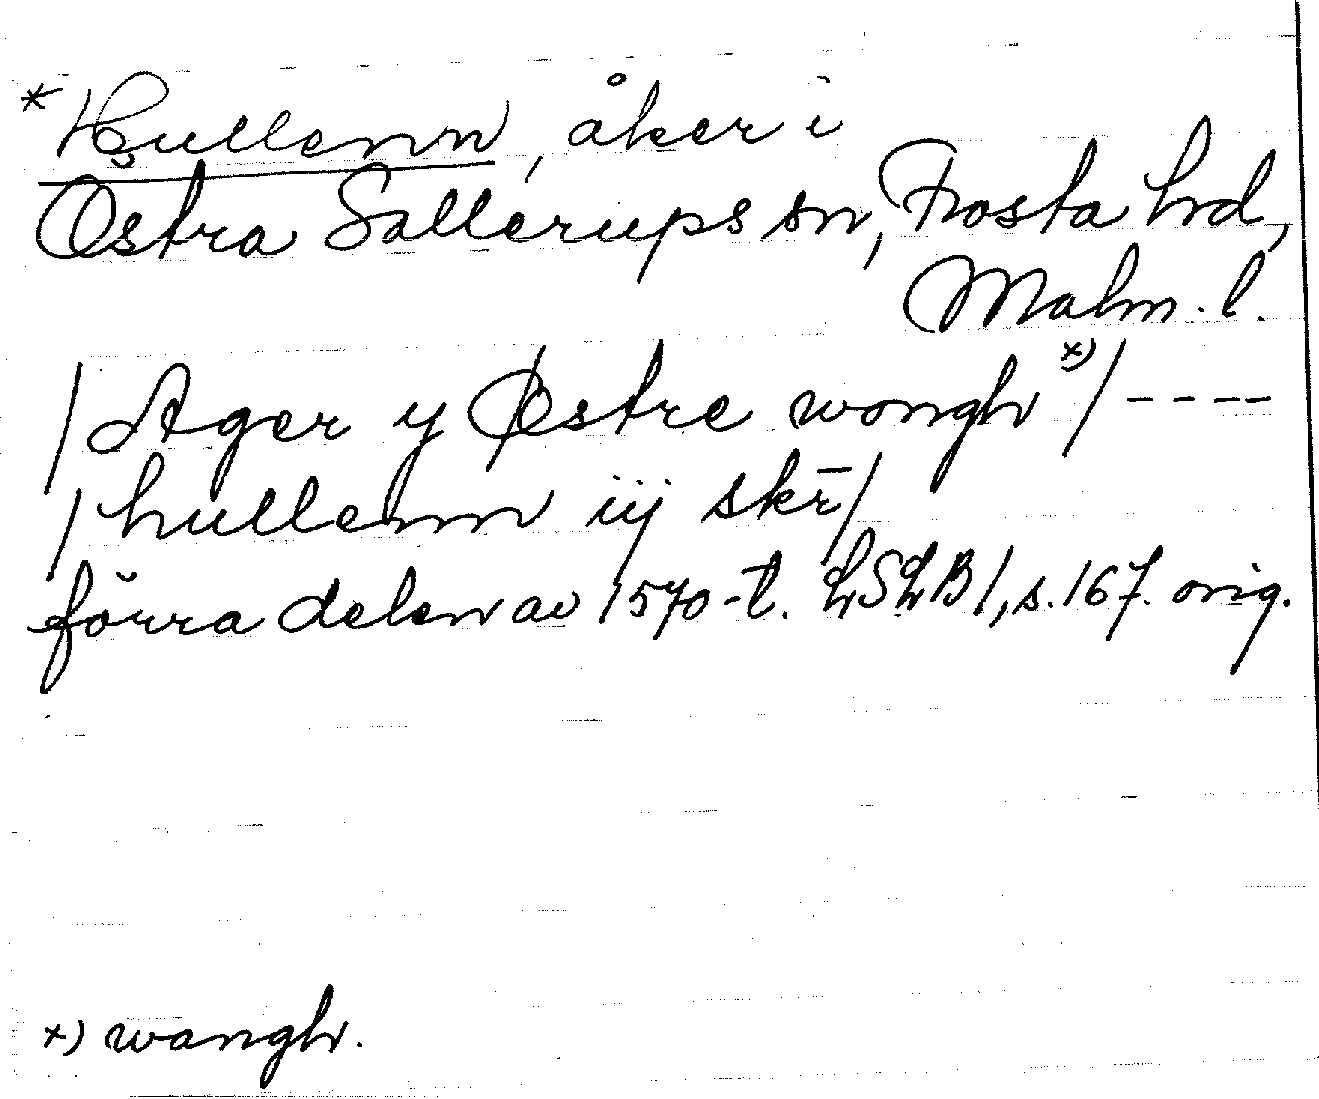 *Hullenn, åker i
Östra Sallerups sn, Frosta hd,
Malm. l.
/ Ager y Østre wongh *) / ----
/ hullenn iij skr̄ /
förra delen av 1570-t. LSLB 1, s. 167. orig.
*) wangh.